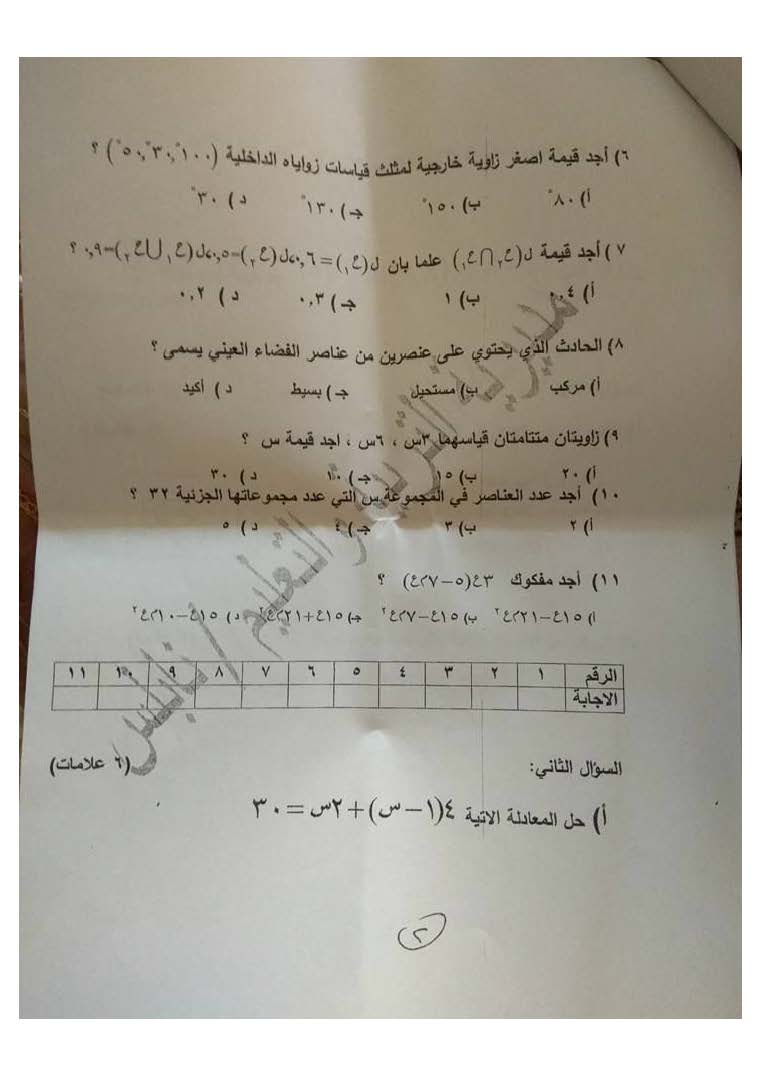 ٦) أجد قيمة اصغر زاوية خارجية لمثلث قياسات زواياه الداخلية (١٠٠°، ٣٠°، ٥٠°) ؟
أ) ٨٠° ب) ١٥٠° جـ) ١٣٠° د) ٣٠°
٧) أجد قيمة ل(ع٢ ∩ ع١) علما بان ل(ع١) = ٠,٦، ل(ع٢)=٠,٥، ل(ع١ ∪ ع٢)=٠,٩ ؟
أ) ٠,٤ ب) ١ جـ) ٠,٣ د) ٠,٢
٨) الحادث الذي يحتوي على عنصرين من عناصر الفضاء العيني يسمى ؟
أ) مركب ب) مستحيل جـ) بسيط د) أكيد
٩) زاويتان متتامتان قياسهما ٣س ، ٦س ، اجد قيمة س ؟
أ) ٢٠ ب) ١٥ جـ) ١٠ د) ٣٠
١٠) أجد عدد العناصر في المجموعة س التي عدد مجموعاتها الجزئية ٣٢ ؟
أ) ٢ ب) ٣ جـ) ٤ د) ٥
١١) أجد مفكوك ٣ع(٥−٧ع٢) ؟
أ) ١٥ع−٢١ع٢ ب) ١٥ع−٧ع٢ جـ) ١٥ع+٢١ع٢ د) ١٥ع−١٠ع٢
الرقم ١ ٢ ٣ ٤ ٥ ٦ ٧ ٨ ٩ ١٠ ١١
الاجابة
السؤال الثاني: (٦ علامات)
أ) حل المعادلة الاتية ٤(١−س)+٢س=٣٠
٢
مديرية التربية والتعليم / نابلس